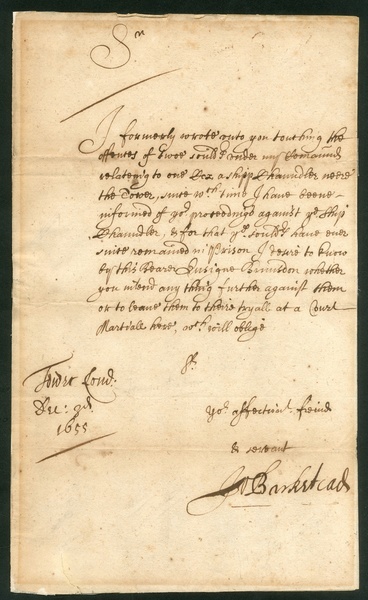 Sr
I formerly wrote unto you touching the
offences of twoe sould:rs under my Comaund
relateing to one a Shipp Chaundler neere
the Tower, since wch time I have beene
informed of yor proceedings against ye Ship
Chandler, & for that ye sould:rs have ever
since remained in Prison I desire to know
by this bearer Ensigne whether
you intend any thing further against them
or to leave them to theire tryall at a Court
Martiale here, wch will oblige
Sr
Tower Lond:
Dec: 3d
1655
yor affectiont freind
& servant
Jo Barkstead